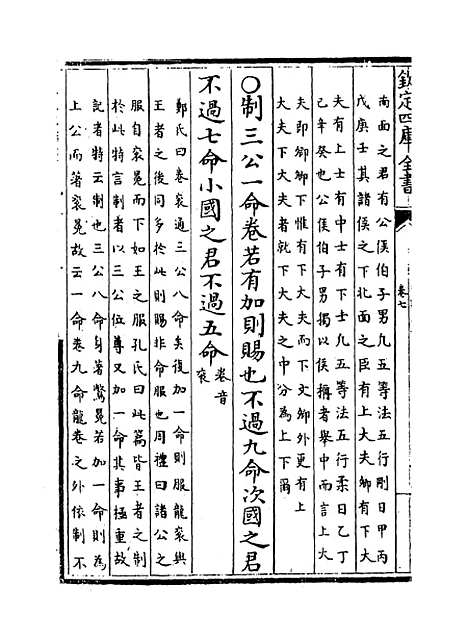 欽定四庫全書
卷七
南面之君有公侯伯子男凡五等法五行剛日甲丙
戊庚壬其諸侯之下北面之臣有上大夫卿有下大
夫有上士有中士有下士凡五等法五行柔日乙丁
己辛癸也公侯伯子男獨以侯稱者舉中而言上大
夫即卿卿下惟有下大夫而下文卿外更有上
大夫下大夫者就下大夫之中分為上下爵
○制三公一命卷若有加則賜也不過九命次國之君
不過七命小國之君不過五命卷音袞
鄭氏曰卷袞通三公八命矣復加一命則服龍袞與
王者之後同多於此則賜非命服也周禮曰諸公之
服自袞冕而下如王之服孔氏曰此篇皆王者之制
於此特言制者以三公位尊又加一命其事極重故
記者特云制也三公八命身著鷩冕若加一命則為
上公而著袞冕故云一命卷九命龍卷之外依制不